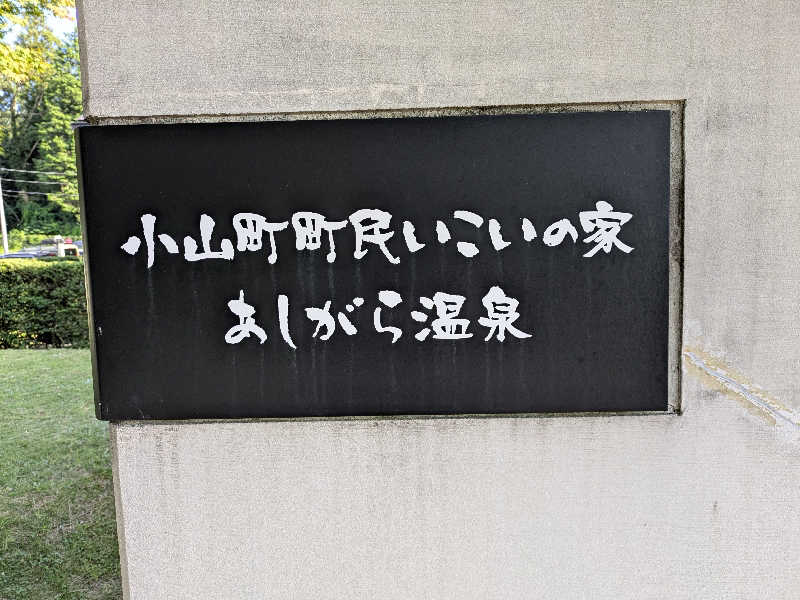 小山町町民いこいの家
あしがら温泉